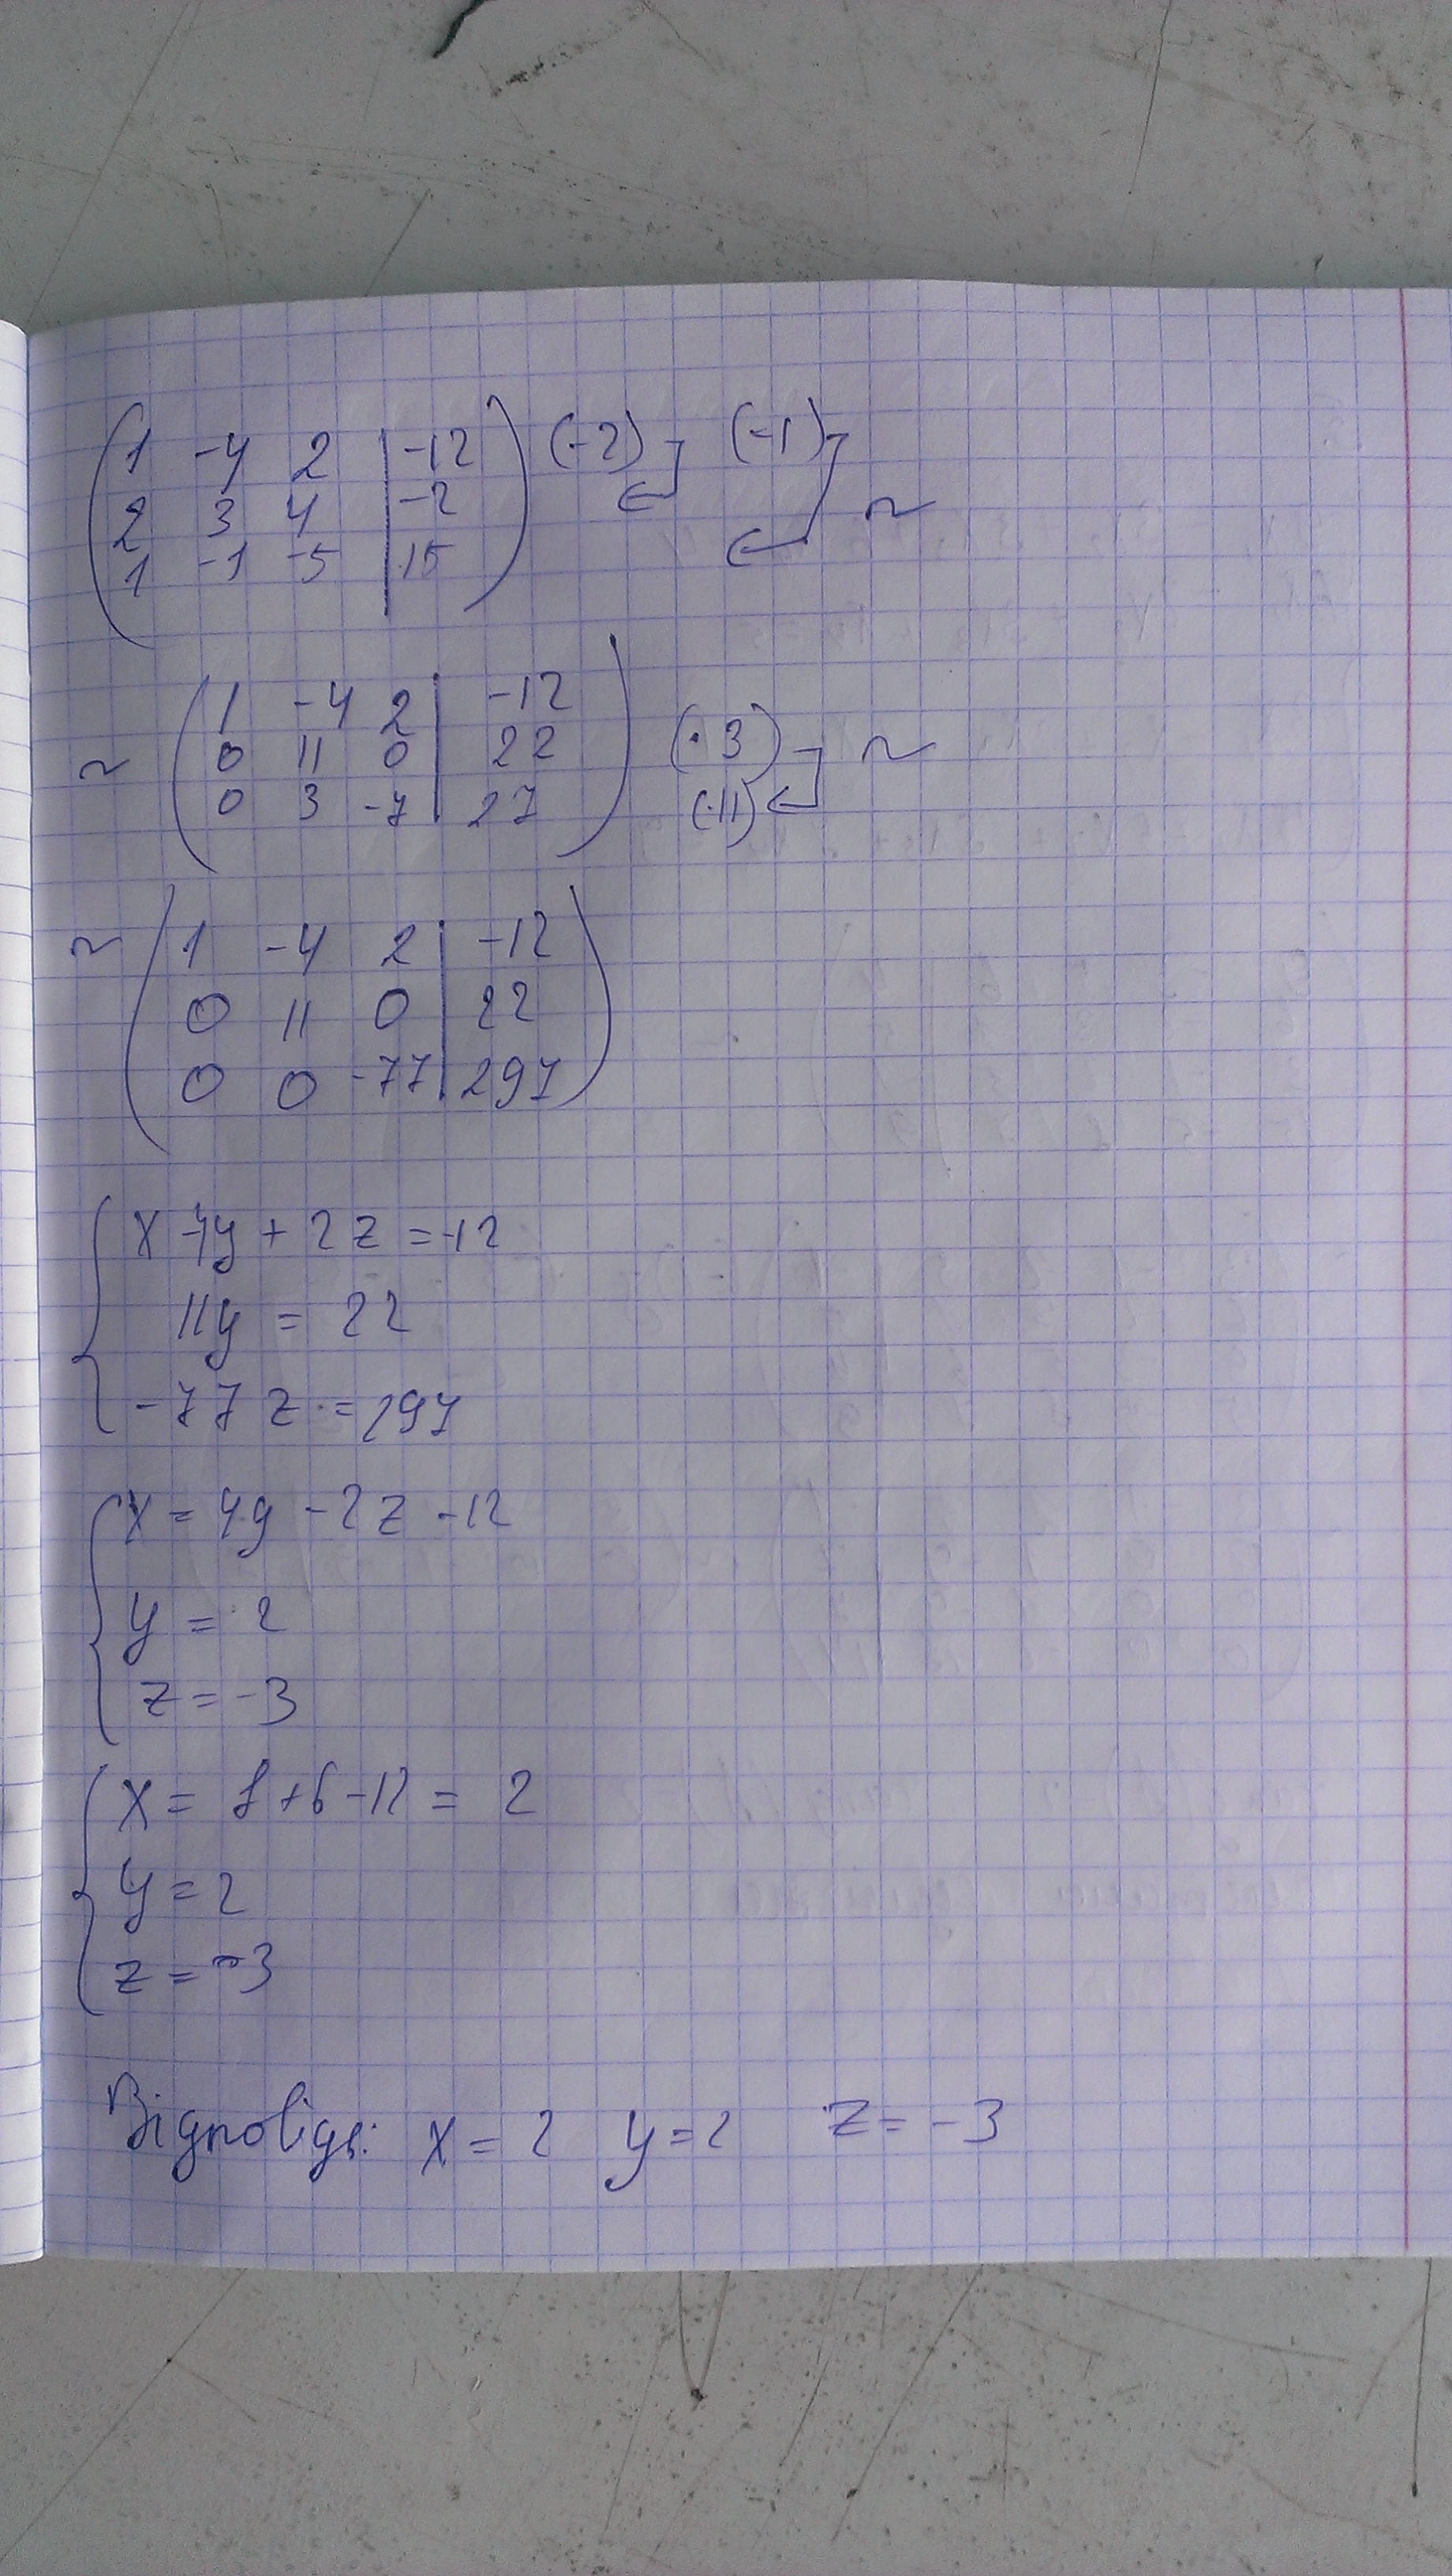 1 -4 2 | -12 (-2) (-1)
2 3 4 | -2 ~
1 -1 -5 | 15
1 -4 2 | -12
~ 0 11 0 | 22 (·3) ~
0 3 -7 | 27 (·11)
~ 1 -4 2 | -12
0 11 0 | 22
0 0 -77 | 297
x -4y + 2z = -12
11y = 22
-77z = 297
x = 4y - 2z - 12
y = 2
z = -3
x = 8 + 6 - 12 = 2
y = 2
z = -3
Відповідь: x = 2 y = 2 z = -3